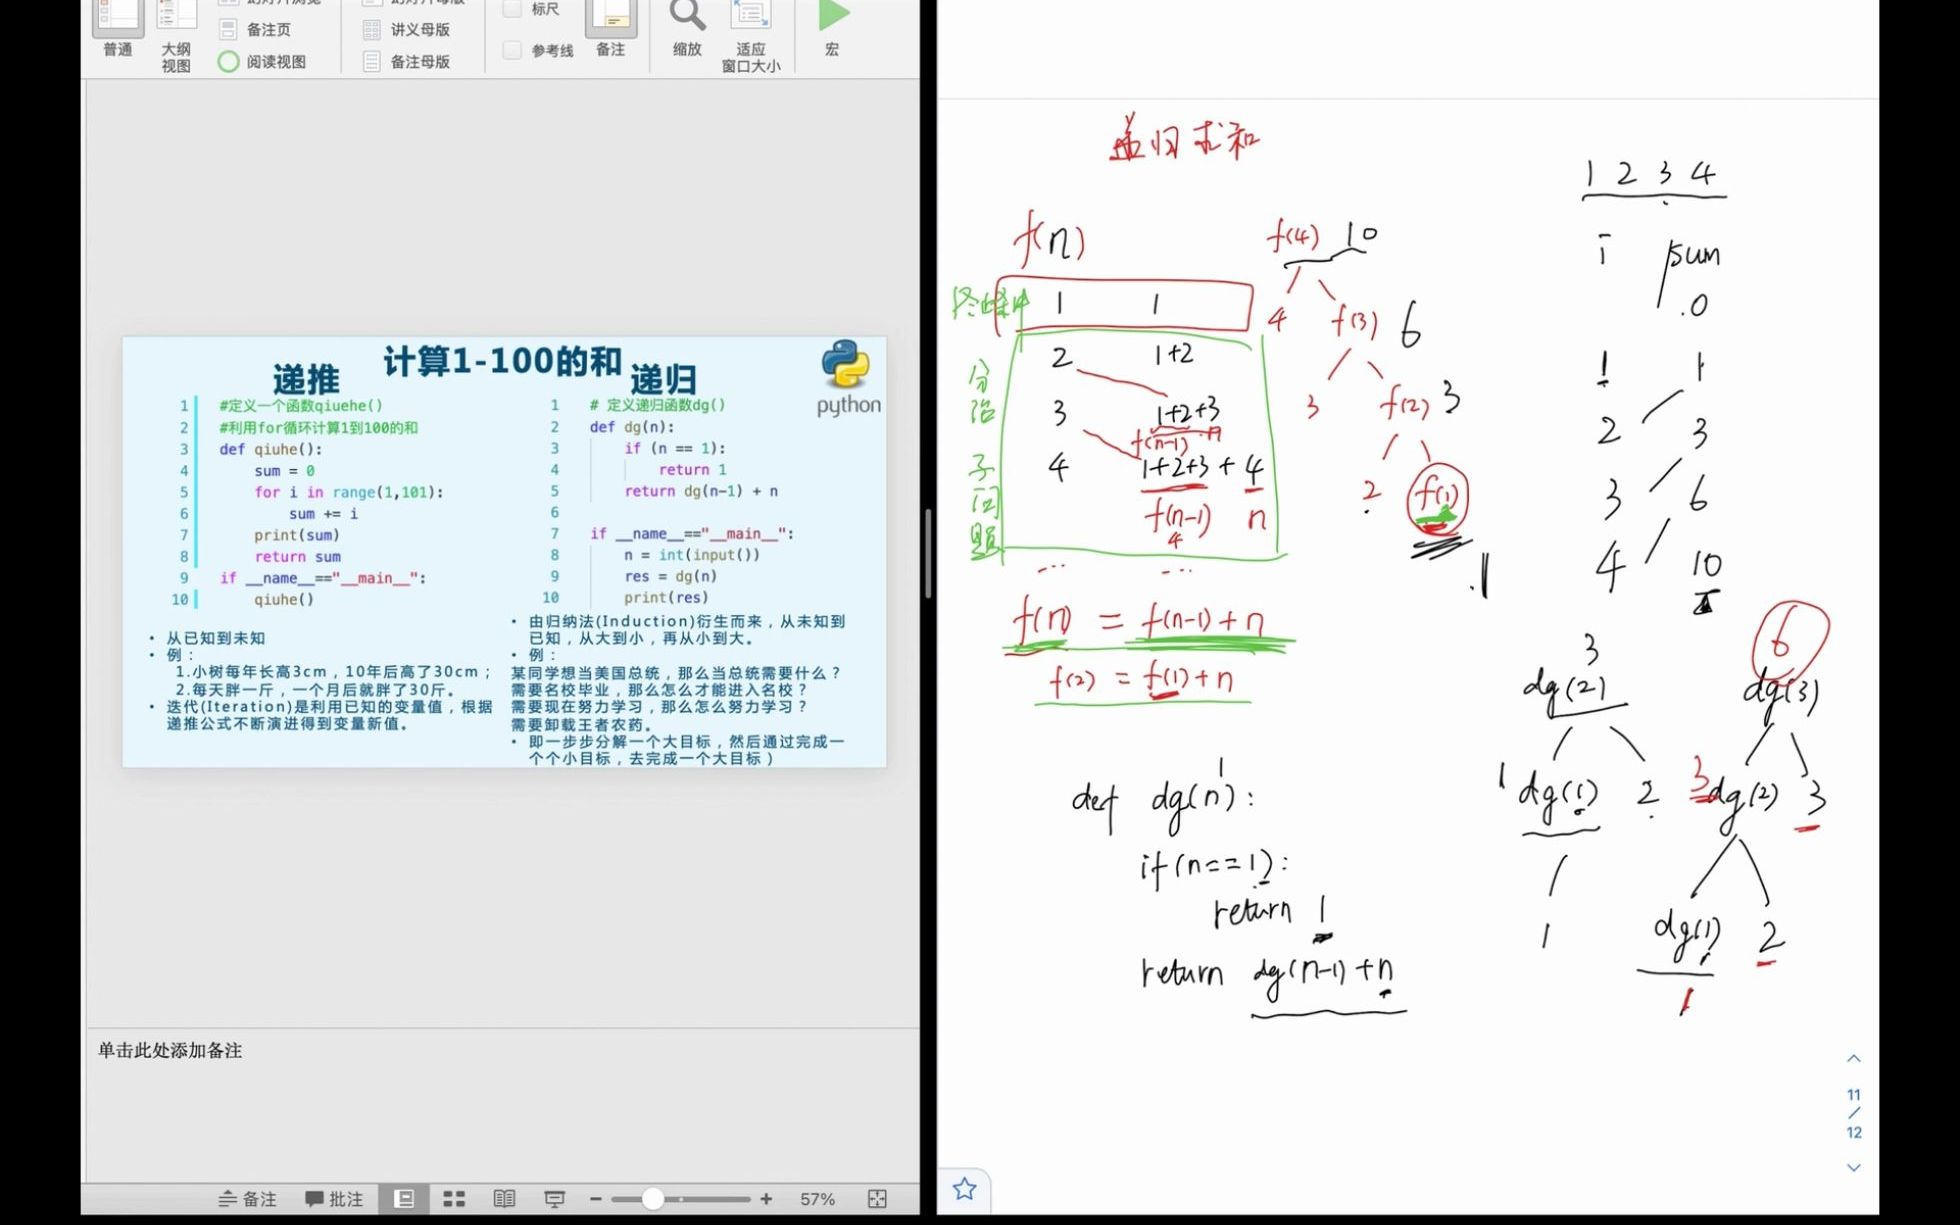 普通
大纲
视图
备注页
阅读视图
讲义母版
备注母版
标尺
参考线
备注
缩放
适应
窗口大小
宏
计算1-100的和
递推
递归
python
1 #定义一个函数qiuehe()
2 #利用for循环计算1到100的和
3 def qiuhe():
4 sum = 0
5 for i in range(1,101):
6 sum += i
7 print(sum)
8 return sum
9 if __name__=="__main__":
10 qiuhe()
1 # 定义递归函数dg()
2 def dg(n):
3 if (n == 1):
4 return 1
5 return dg(n-1) + n
6
7 if __name__=="__main__":
8 n = int(input())
9 res = dg(n)
10 print(res)
• 从已知到未知
• 例：
1.小树每年长高3cm，10年后高了30cm；
2.每天胖一斤，一个月后就胖了30斤。
• 迭代(Iteration)是利用已知的变量值，根据
递推公式不断演进得到变量新值。
• 由归纳法(Induction)衍生而来，从未知到
已知，从大到小，再从小到大。
• 例：
某同学想当美国总统，那么当总统需要什么？
需要名校毕业，那么怎么才能进入名校？
需要现在努力学习，那么怎么努力学习？
需要卸载王者农药。
• 即一步步分解一个大目标，然后通过完成一
个个小目标，去完成一个大目标）
单击此处添加备注
备注
批注
57%
递归求和
f(n)
终止条件 1 1
2 1+2
3 1+2+3
f(n-1) n
4 1+2+3 + 4
f(n-1) n
4
分治子问题
... ...
f(n) = f(n-1)+n
f(2) = f(1)+n
f(4) 10
4 f(3) 6
3 f(2) 3
2 f(1)
1
1 2 3 4
i sum
0
1 1
2 3
3 6
4 10
1
def dg(n):
if(n==1):
return 1
return dg(n-1)+n
3
dg(2)
1 dg(1) 2
1
6
dg(3)
3 dg(2) 3
dg(1) 2
1
11
/
12